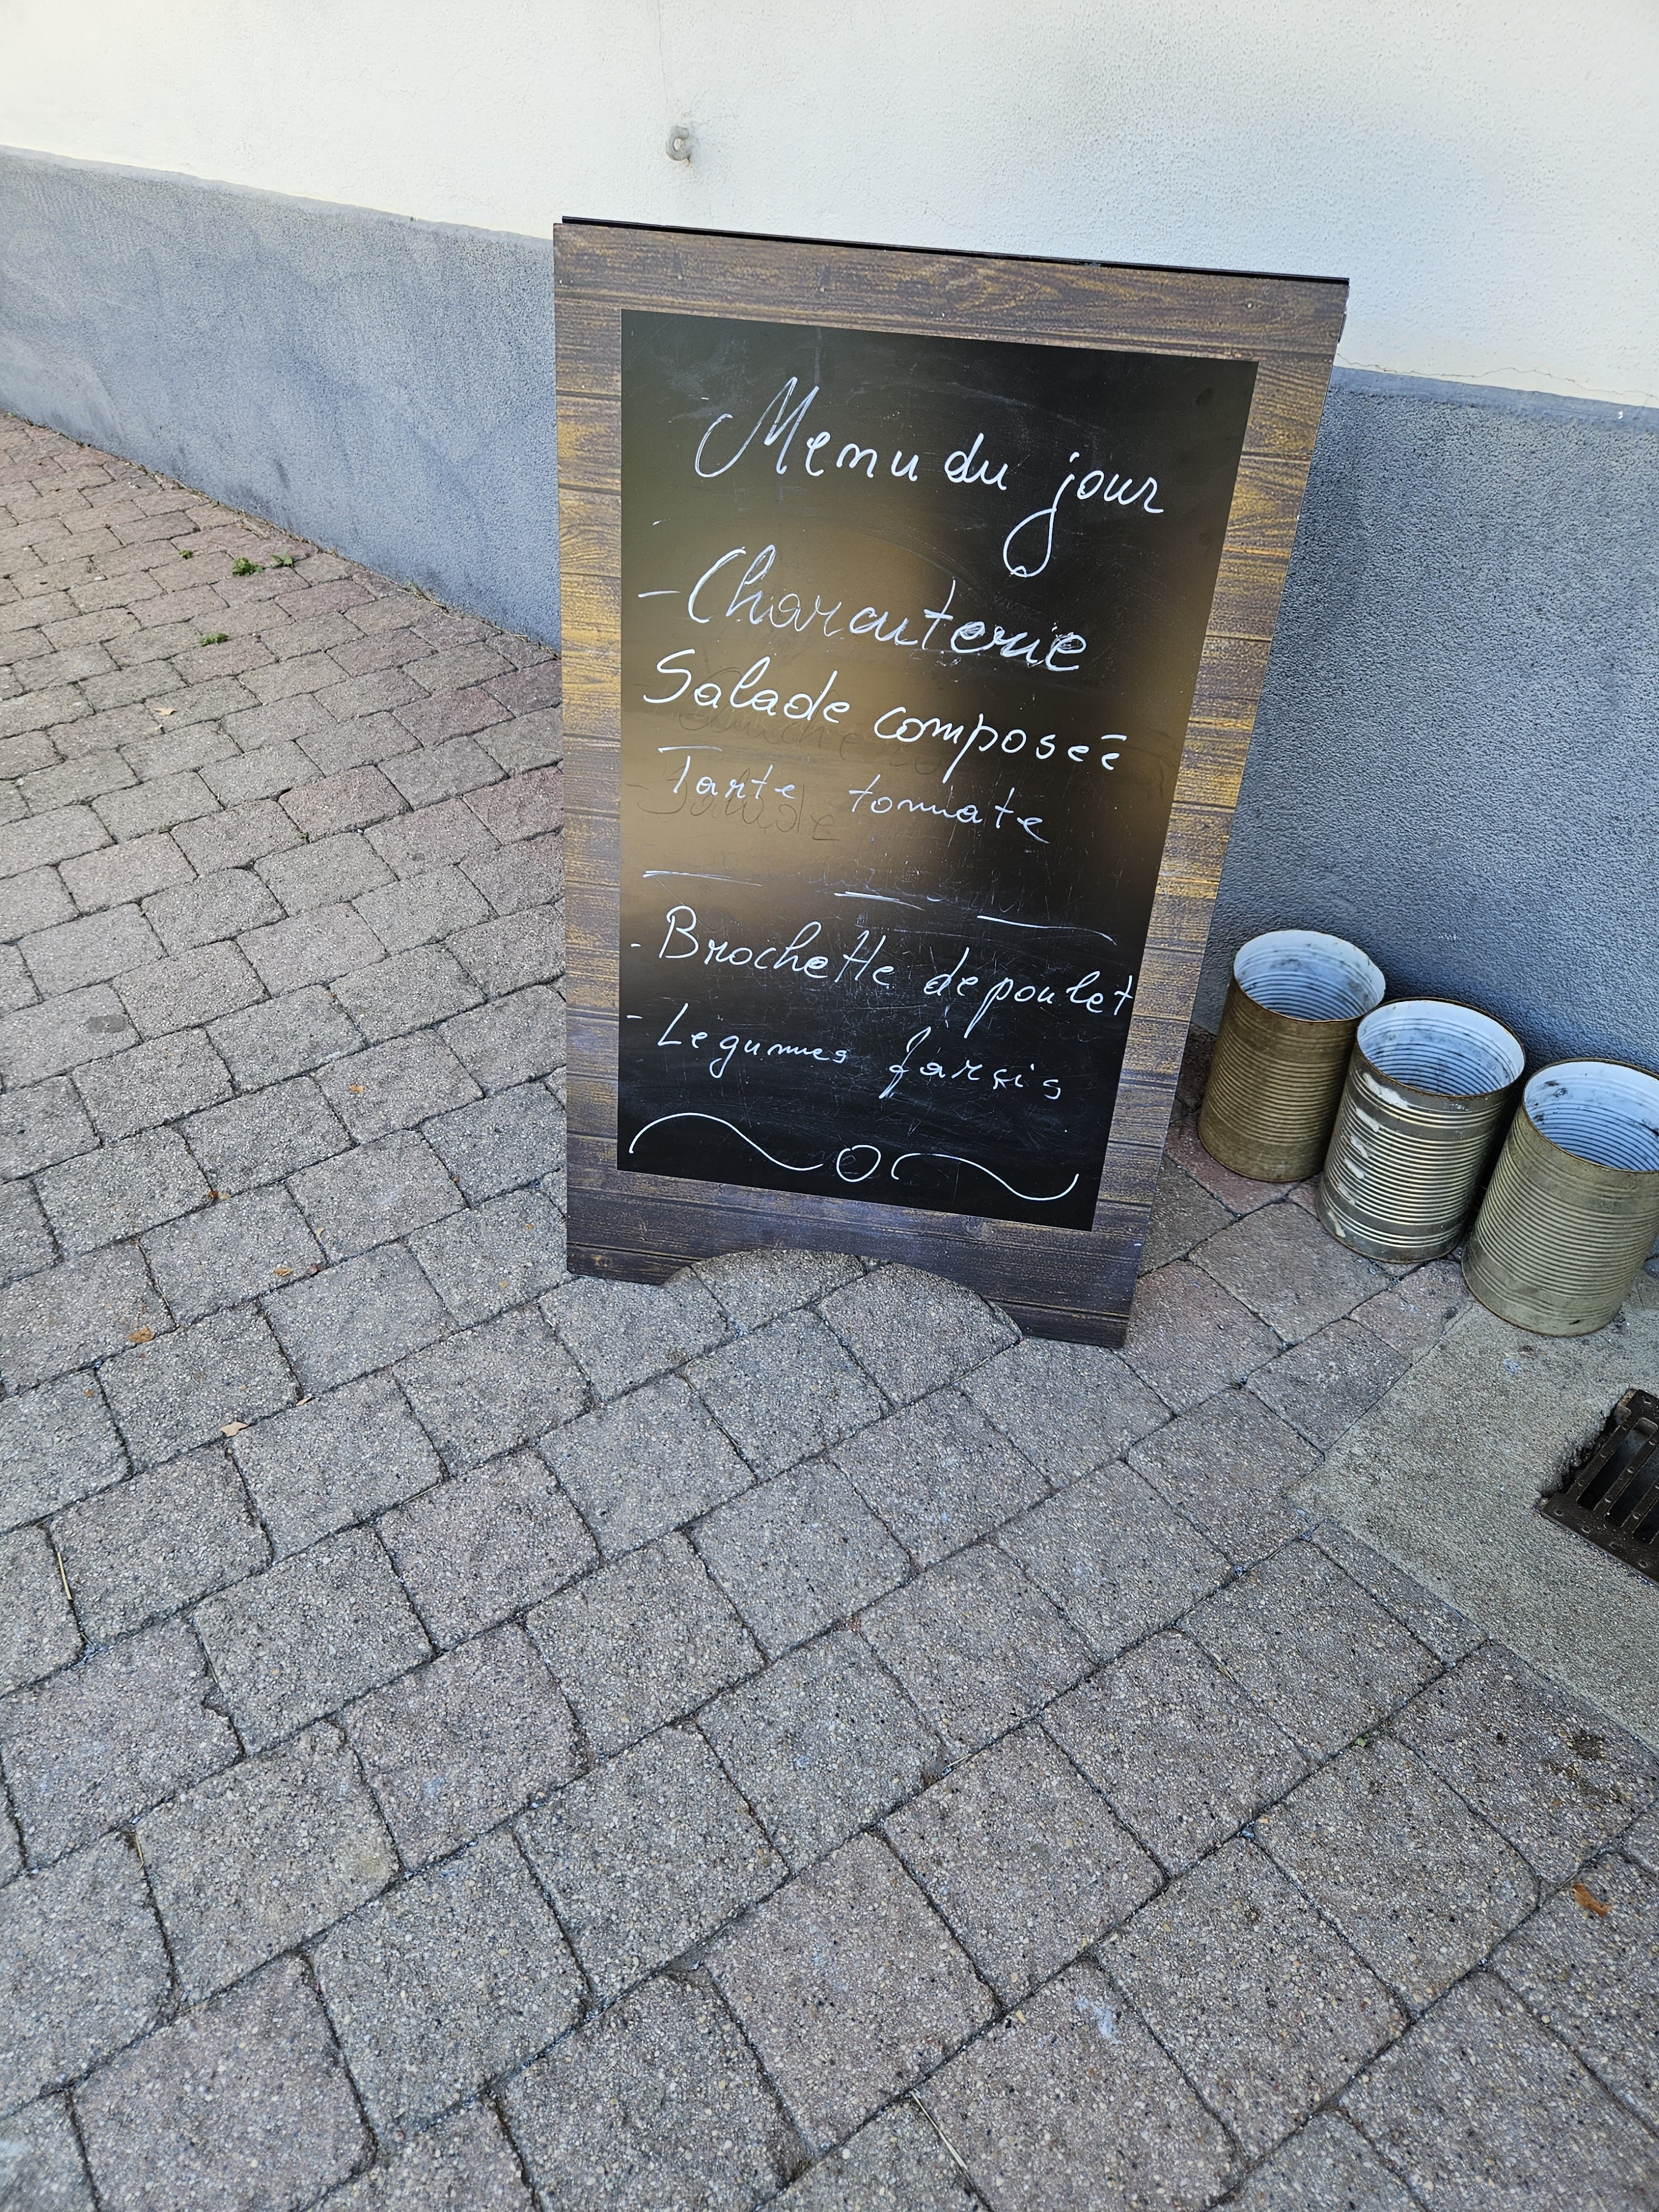 Menu du jour
- Charcuterie
Salade composée
Tarte tomate
- Brochette de poulet
- Legumes farcis